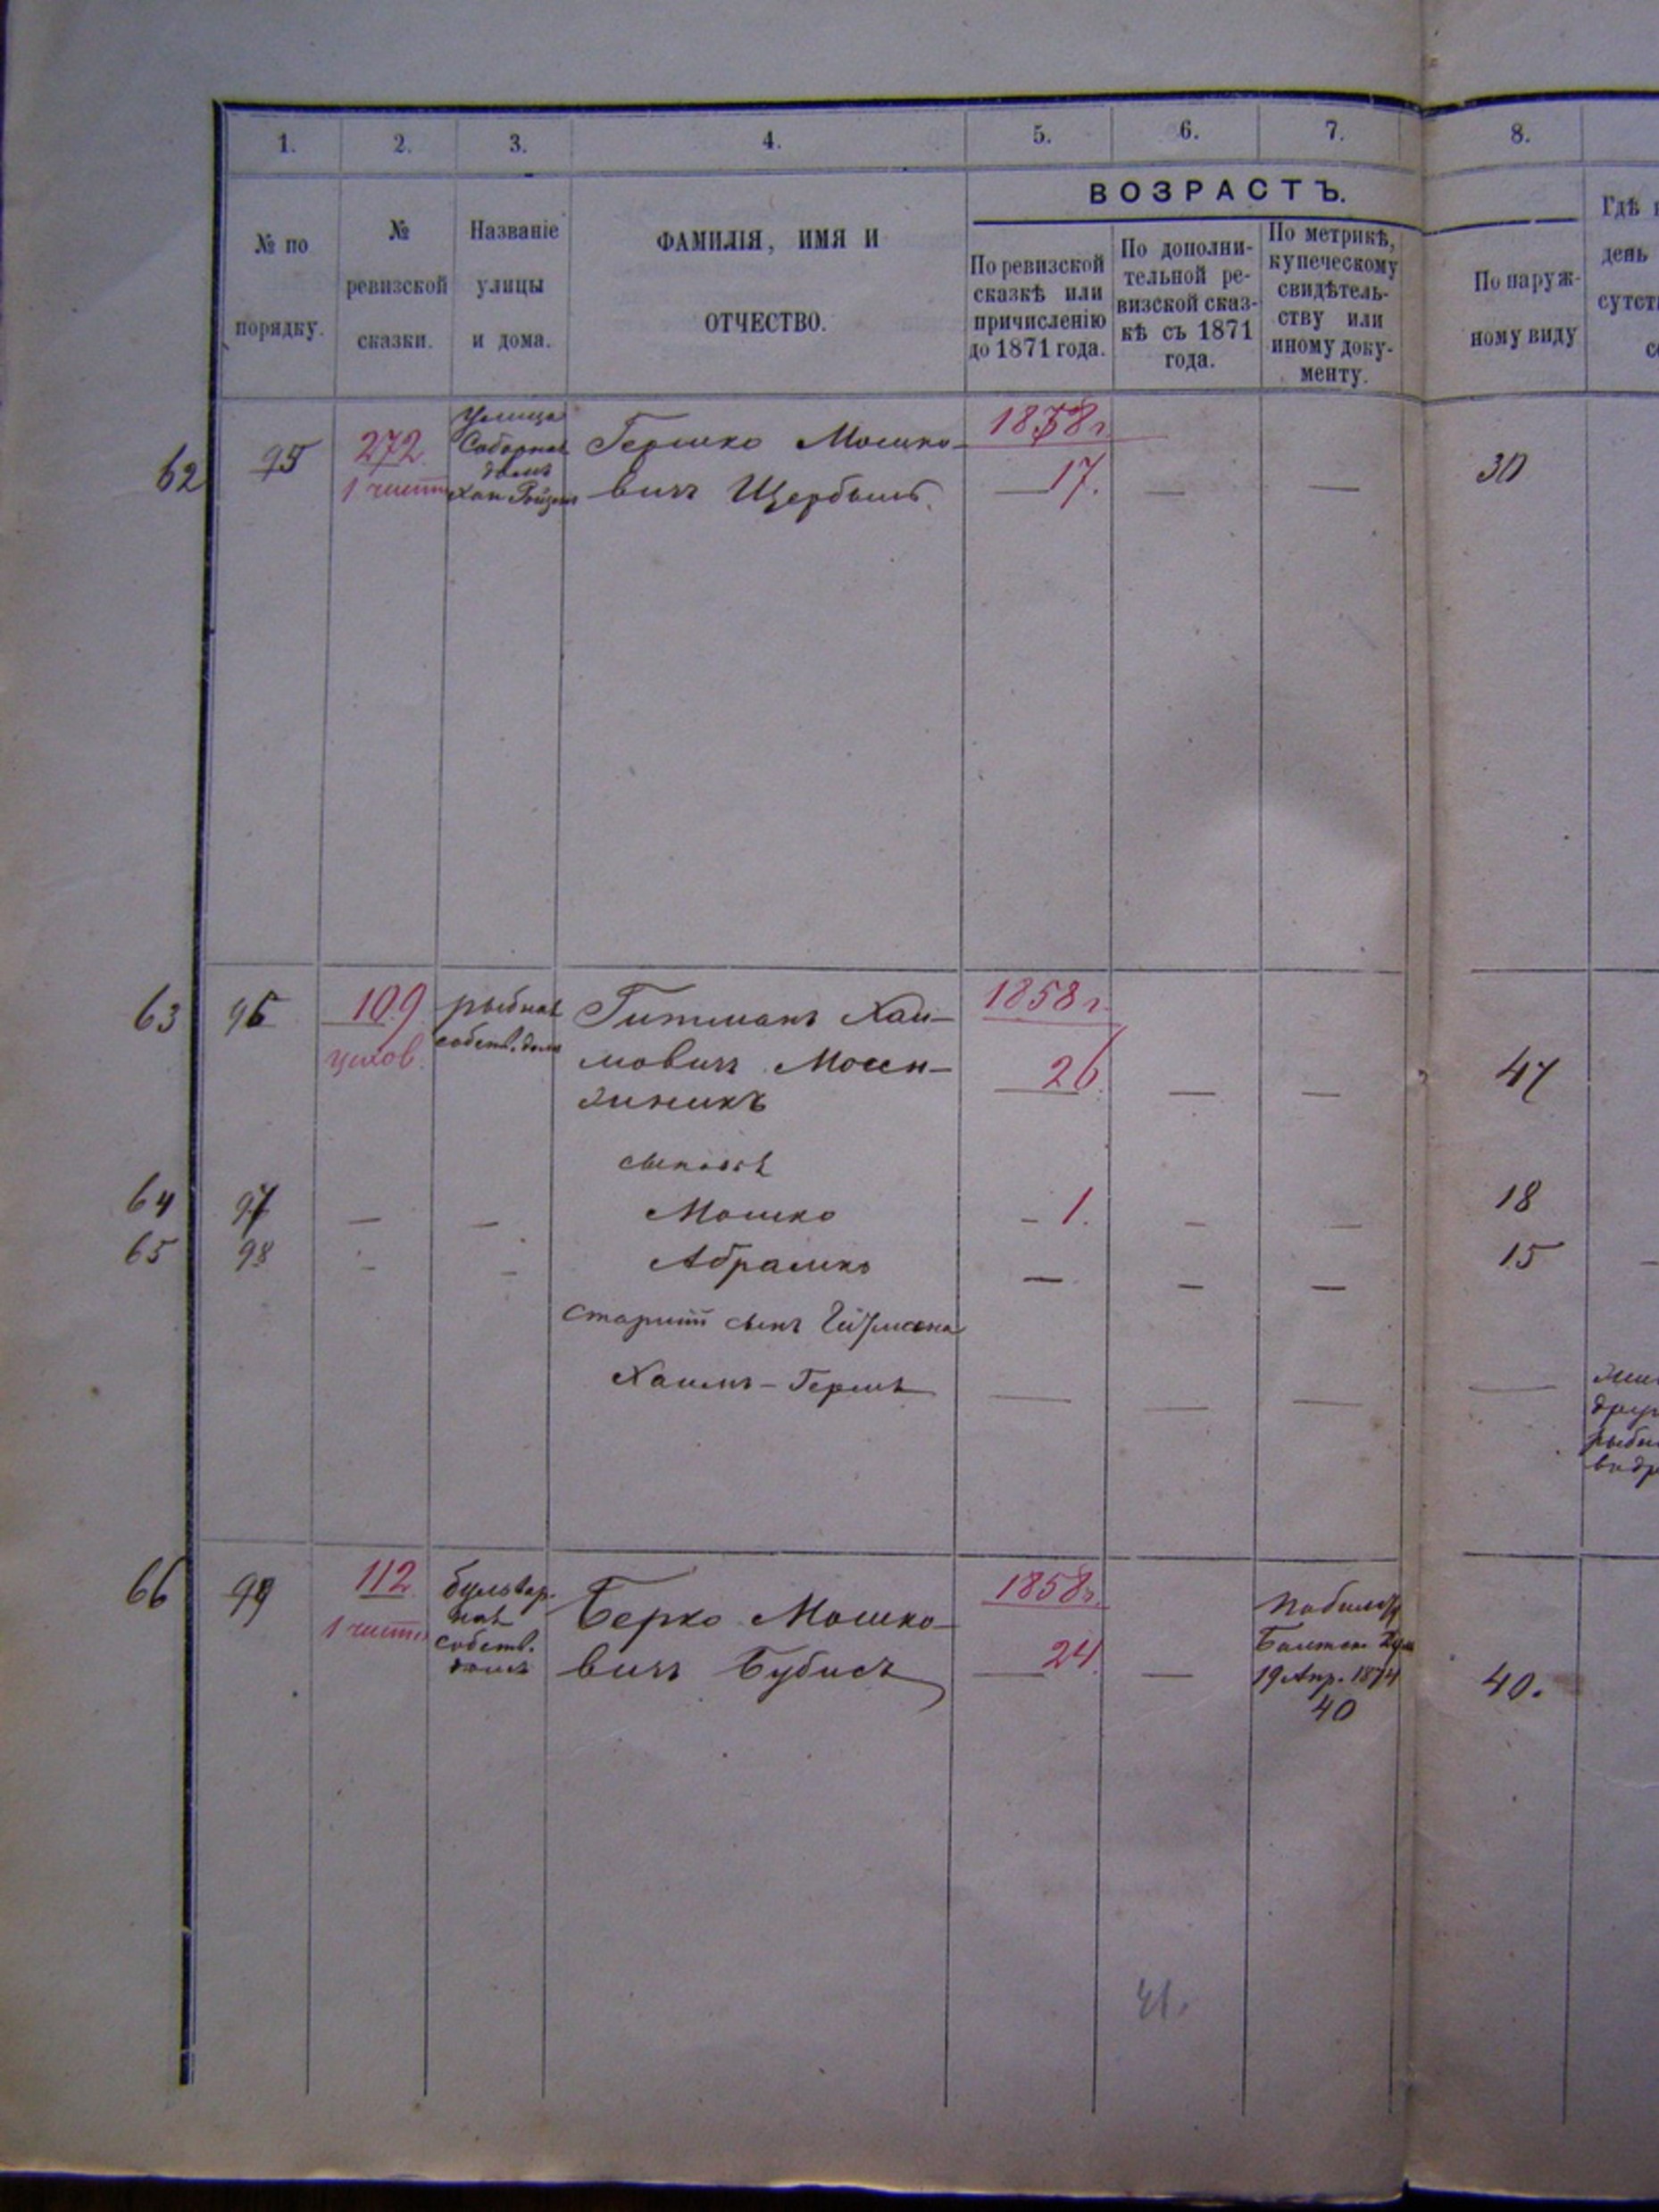 1. 2. 3. 4. 5. 6. 7. 8.
ВОЗРАСТЪ.
№ по
порядку.
№
ревизской
сказки.
Названіе
улицы
и дома.
ФАМИЛІЯ, ИМЯ И
ОТЧЕСТВО.
По ревизской
сказкѣ или
причисленію
до 1871 года.
По дополни-
тельной ре-
визской сказ-
кѣ съ 1871
года.
По метрикѣ,
купеческому
свидѣтель-
ству или
иному доку-
менту.
По наруж-
ному виду
Гдѣ
день
сутст
62 95 272
Улица
Соборная
домъ
Гершко Мошко-
вичъ
1858 г.
17. — — 30
63 96 109
рыбная
собств. домъ
Гитманъ Хаи-
мовичъ
1858 г.
26. — — 47
сыновья
64 97 — — Мошко – 1. — — 18
65 98 – – Абрамко — — — 15
старшій сынъ Гитмана
Хаимъ-Герш — — — —
66 99 112
бульвар-
ная
собств.
домъ
Берко Мошко-
вичъ Бубисъ
1858 г.
24. —
19 Апр. 1874
40
40.
41.